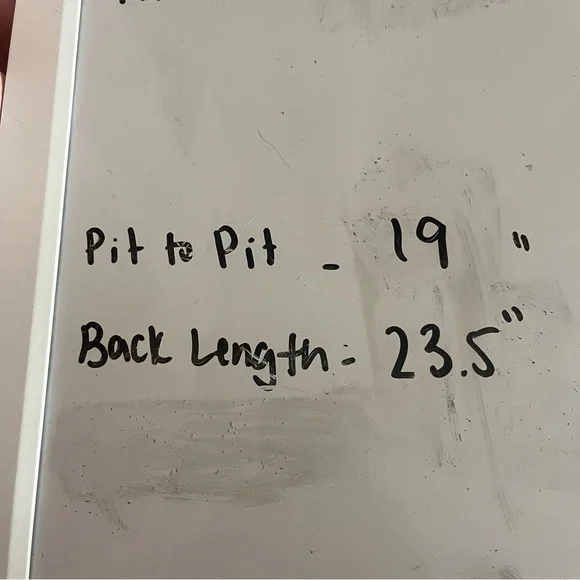 Pit to Pit - 19 "
Back Length - 23.5"